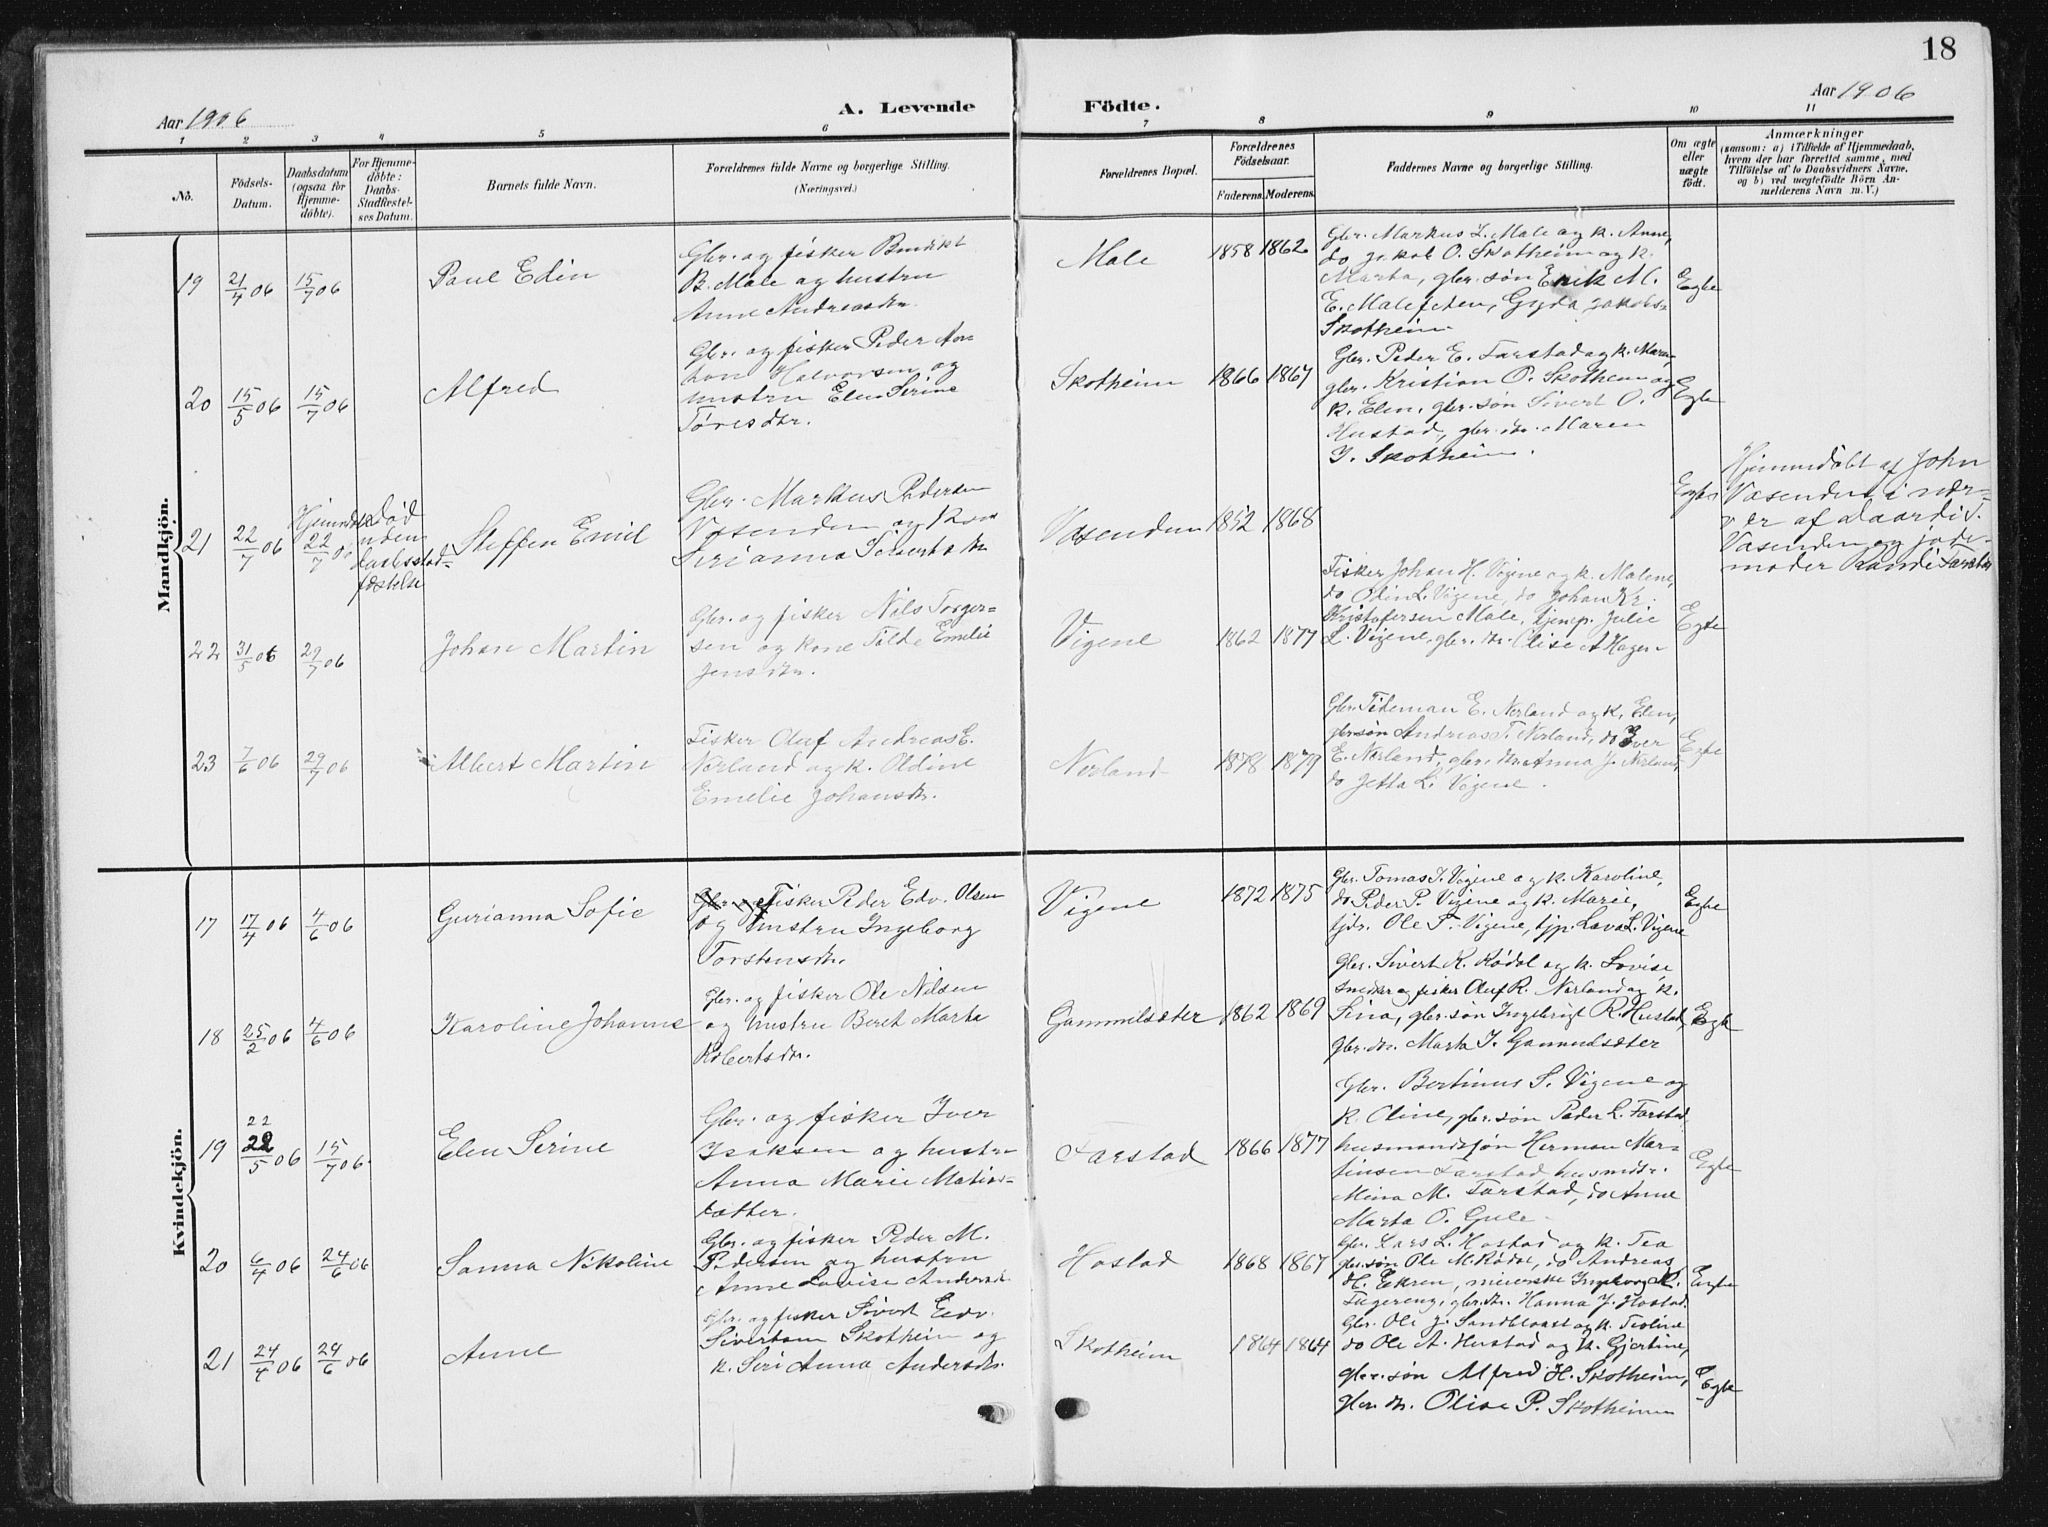 18
Aar 1906
A. Levende
Födte.
Aar 1906
1 2 3 4 5 6 7 8 9 10 11
No.
Födsels-
Datum.
Daabsdatum
(ogsaa for
Hjemme-
döbte).
For Hjemme-
döbte:
Daabs-
Stadfæstel-
ses Datum.
Barnets fulde Navn.
Forældrenes fulde Navne og borgerlige Stilling.
(Næringsvei.)
Forældrenes Bopæl.
Forældrenes
Födselsaar.
Faderens. Moderens.
Faddernes Navne og borgerlige Stilling.
Om ægte
eller
uægte
födt.
Anmærkninger
(saasom: a) i Tilfælde af Hjemmedaab,
hvem der har forrettet samme, med
Tilföielse af to Daabsvidners Navne,
og b) ved uægtefödte Börn An-
melderens Navn m. V.)
Mandkjön.
19 21/4 06 15/7 06 Paul Edin
Gbr. og fisker Bendikt
B. Male og hustru
Anne Andreasdtr.
Male 1858 1862
Gbr. Markus L. Male og k. Anne,
do Jakob O. Skotheim og k.
Marta, gbr. søn Erik M.
E. Malefeten, Gyda Jakobs-
Skotheim
Egte
20 15/5 06 15/7 06 Alfred
Gbr. og fisker Peder An
ton Halvorsen og
hustru Elen Serine
Tøresdtr.
Skotheim 1866 1867
Gbr. Peder E. Farstad og k. Maren,
gbr. Kristian O. Skotheim og
k. Elen, gbr. søn Sivert O.
Hustad, gbr. dtr. Maren
J. Skotheim.
Egte
21 22/7 06 Hjemmedøbt 22/7 06
Død
inden
daabsstad-
fæstelse
Steffen Emil
Gbr. Markus Pedersen
Vasenden og Kone
Serianna Sivertsdtr
Vasenden 1852 1868
Egte
Hjemmedøbt af John
Vasenden i nær-
vær af Daardi S.
Vasenden og jode-
moder Randi Farstad
22 31/5 06 29/7 06 Johan Martin
Gbr. og fisker Nils Torger-
sen og kone Tilda Emelie
Jensdtr.
Vigene 1862 1877
Fisker Johan H. Vigene og k. Malene,
do Olin L. Vigene, do Johan Kr.
Kristofersen Male, tjenp. Julie
L. Vigene, gbr. dtr. Olise A Hagen-
Egte
23 7/6 06 29/7 06 Albert Martin
Fisker Oluf Andreas E.
Nerland og k. Oldine
Emelie Johansdtr.
Nerland 1878 1879
Gbr. Tideman E. Nerland og k. Elen,
gbr søn Andreas T. Nerland, do Iver
E. Nerland, gbr. dtr Anna J. Nerland,
do Jetta L. Vigene.
Egte
Kvindekjön.
17 17/4 06 4/6 06 Gurianna Sofie
Gbr. og Fisker Peder Edv. Olsen
og hustru Ingeborg
Torstensdtr.
Vigene 1872 1875
Gbr. Tomas T. Vigene og k. Karoline,
do Peder P. Vigene og k. Marie,
tjdr. Ole T. Vigene, tjp. Lava L. Vigene
Egte
18 25/2 06 4/6 06 Karoline Johanne
Gbr. og fisker Ole Nilsen
og hustru Beret Marta
Robertsdtr.
Gammelsæter 1862 1869
Gbr. Sivert K. Rødal og k. Lovise
snedker og fisker Oluf R. Nerland og k.
Sina, gbr. søn Ingebrigt R. Hustad,
gbr. dtr. Marta J. Gammelsæter
Egte
19 22 22/5 06 15/7 06 Elen Serine
Gbr. og fisker Iver
Isaksen og hustru
Anna Marie Matias-
datter.
Farstad 1866 1877
Gbr. Bertinus S. Vigene og
k. Oline, gbr. søn Peder L. Farstad,
husmandssøn Herman Mar-
tinsen Farstad, husmdtr.
Mina M. Farstad, do Anne
Marta O. Gule.
Egte
20 6/4 06 24/6 06 Sanna Nikoline
Gbr. og fisker Peder M.
Pedersen og hustru
Anne Lovise Andersdtr
Hostad 1868 1867
Gbr. Lars L. Hostad og k. Tea
gbr. søn Ole M. Rødal, do Andreas
H. Eikren, meierske Ingeborg K.
Tugereng, gbr. dtr. Hanna J. Hostad.
Egte
21 24/4 06 24/6 06 Anne
Gbr. og fisker Sivert Edv.
Sivertsen Skotheim og
k. Seri Anna Andersdtr.
Skotheim 1864 1864
Gbr. Ole J. Sandblaast og k. Teoline
do Ole A. Hustad og k. Gjertine,
gbr. søn Alfred H. Skotheim,
gbr. dtr. Olise P. Skotheim
Egte